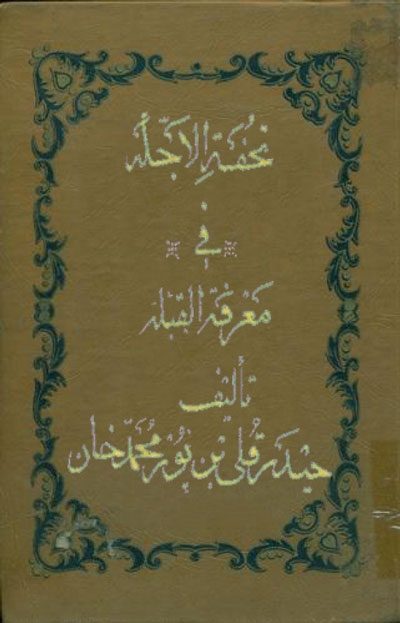 تحفة الاجله
في
معرفة القبله
تأليف
حيدر قلى بن نور محمد خان